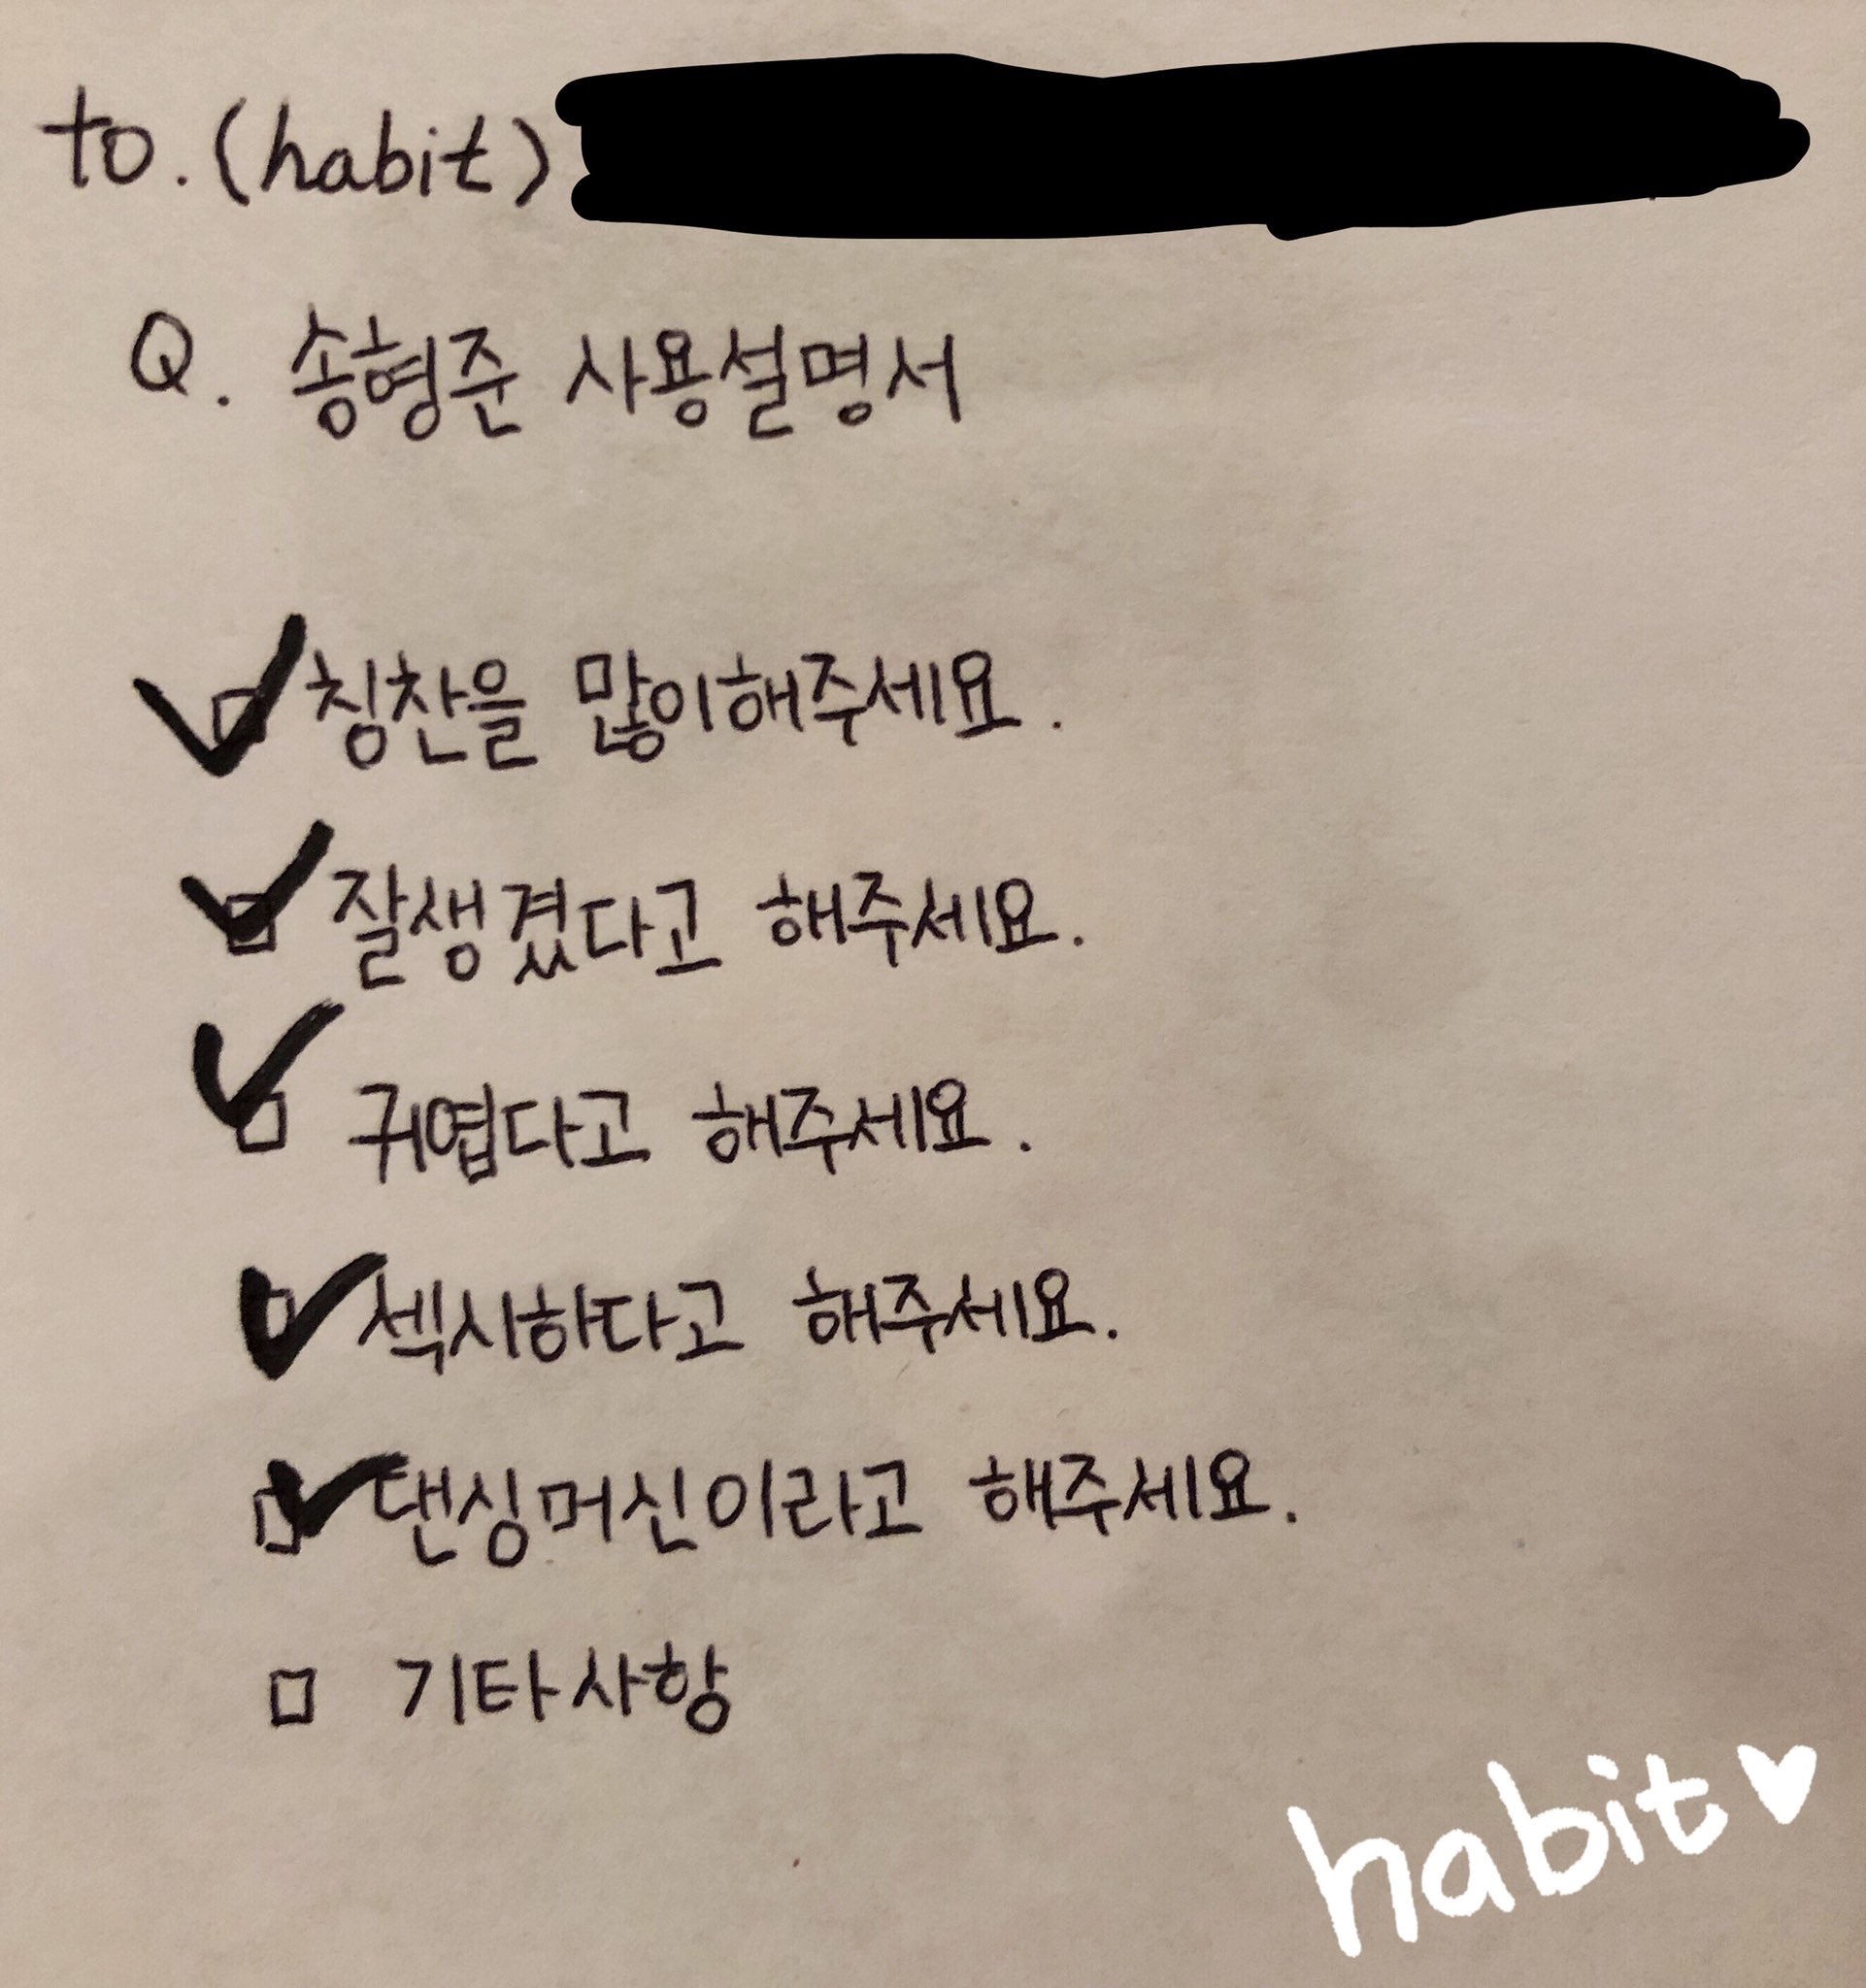 to. (habit)
Q. 송형준 사용설명서
칭찬을 많이해주세요.
잘생겼다고 해주세요.
귀엽다고 해주세요.
섹시하다고 해주세요.
댄싱머신이라고 해주세요.
기타사항
habit